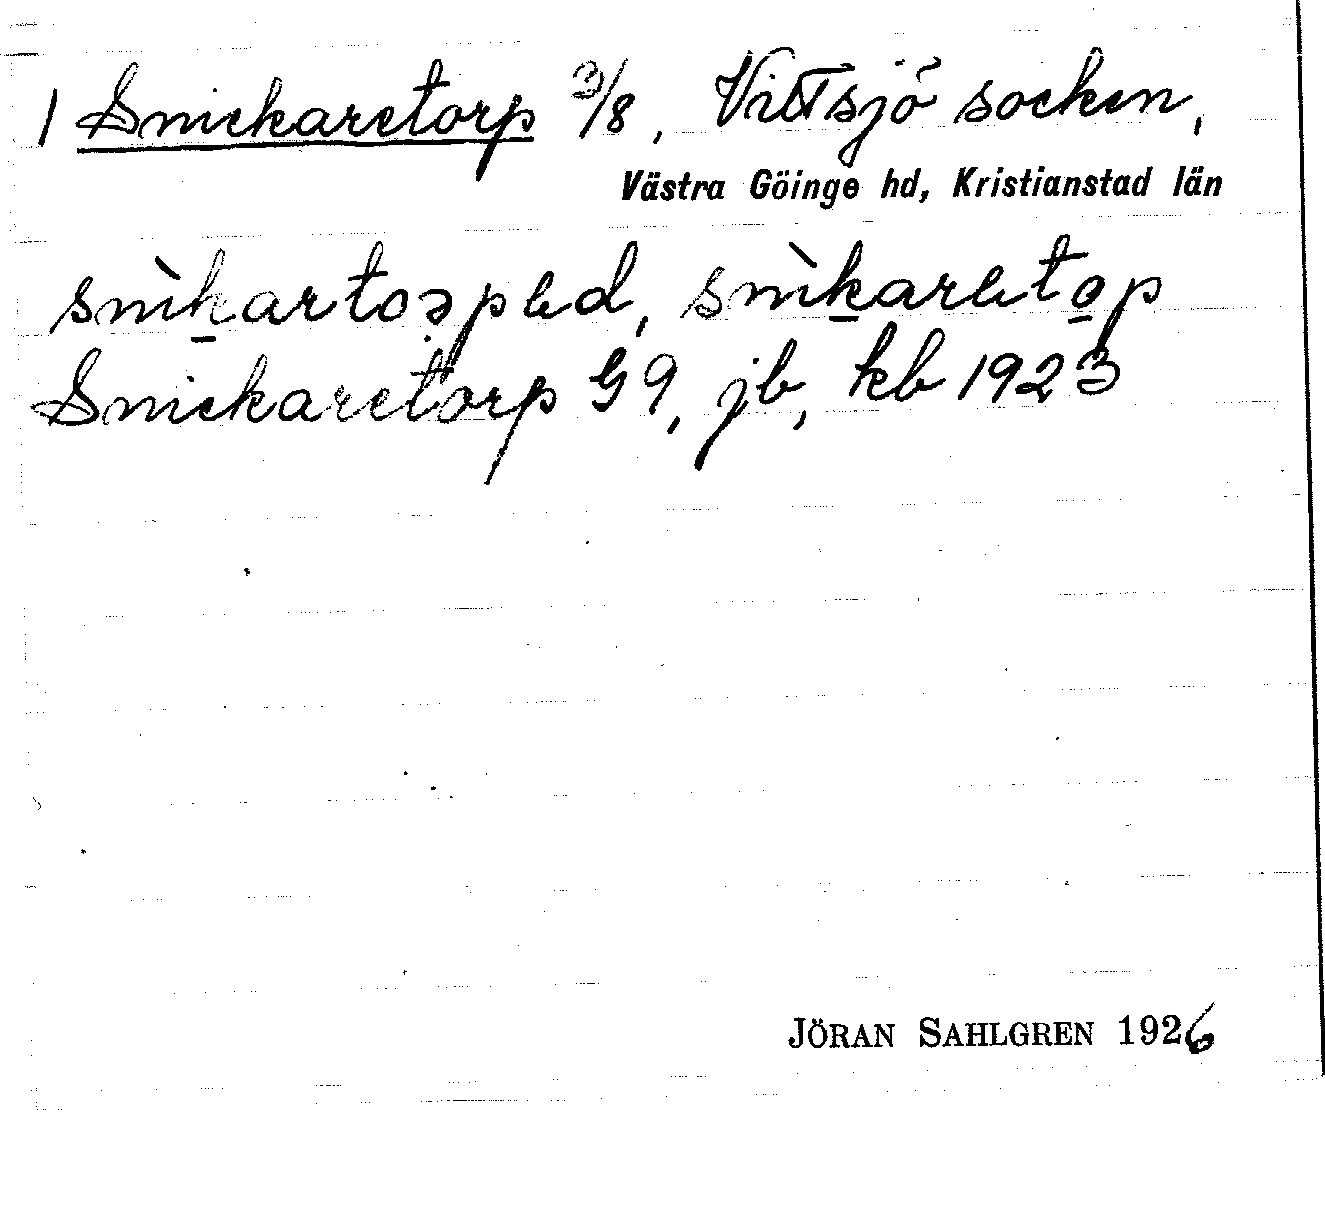 1 Snickaretorp 3/8, Vittsjö socken,
Västra Göinge hd, Kristianstad län
snìkartoəpəd, snìkarətop
Snickaretorp G9, jb, kb 1923
JÖRAN SAHLGREN 1926